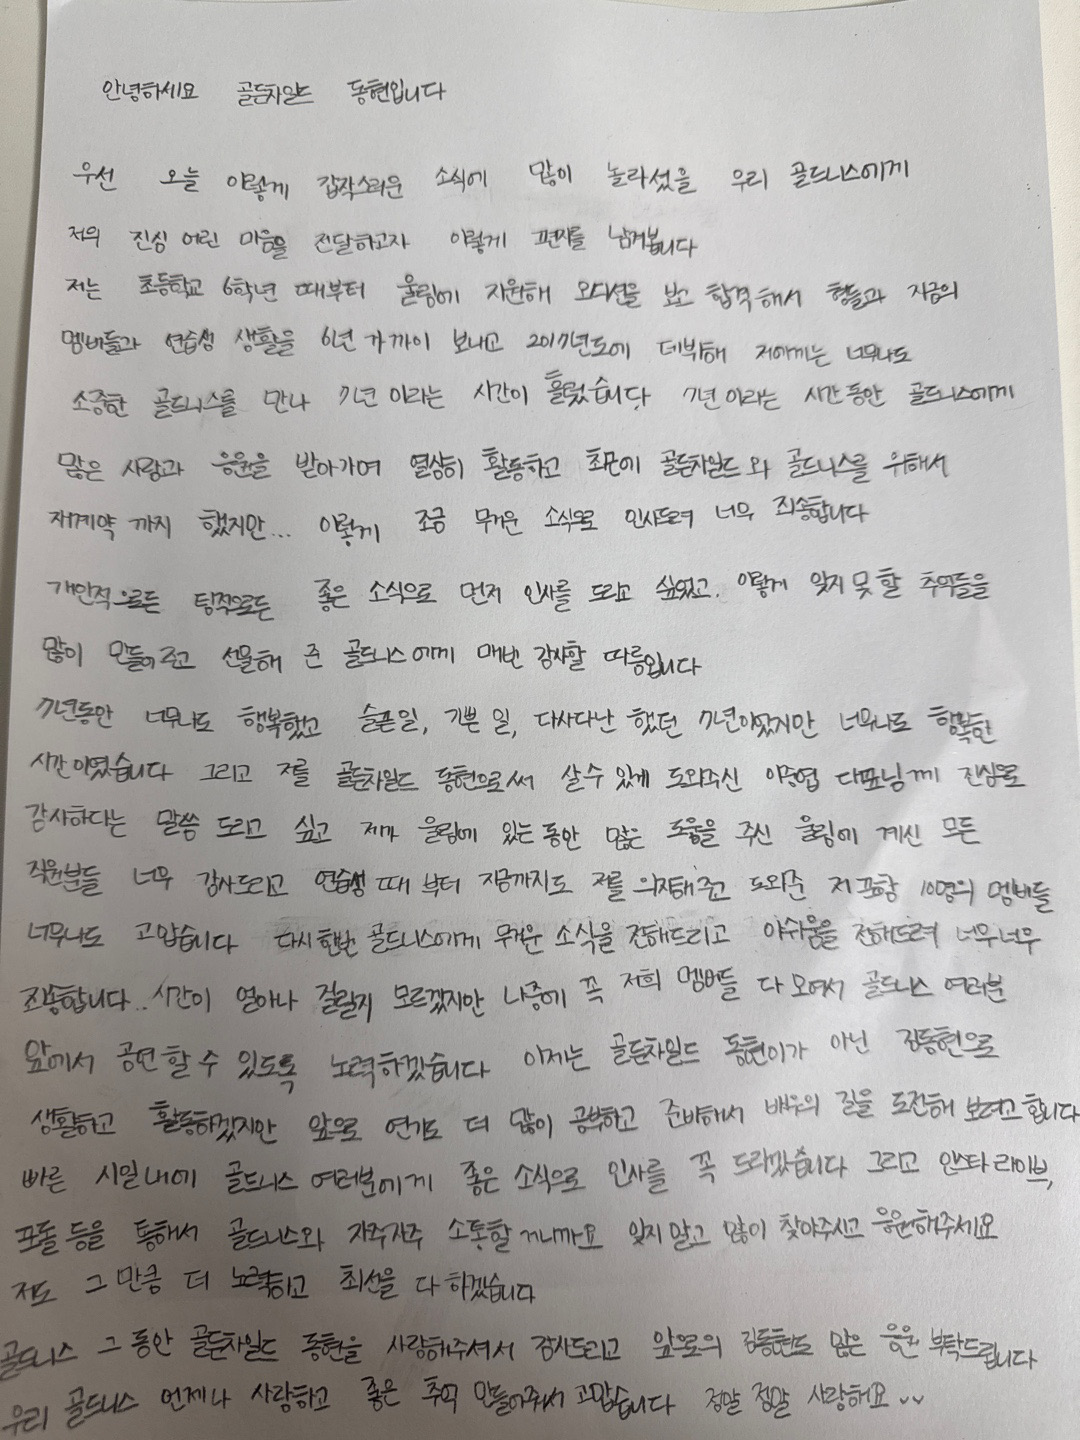 안녕하세요 골든차일드 동현입니다
우선 오늘 이렇게 갑작스러운 소식에 많이 놀라셨을 우리 골드니스에게
저의 진심 어린 마음을 전달하고자 이렇게 편지를 남겨봅니다
저는 초등학교 6학년 때부터 울림에 지원해 오디션을 보고 합격해서 형들과 지금의
멤버들과 연습생 생활을 6년 가까이 보내고 2017년도에 데뷔해 저에게는 너무나도
소중한 골드니스를 만나 7년 이라는 시간이 흘렀습니다. 7년 이라는 시간동안 골드니스에게
많은 사랑과 응원을 받아가며 열심히 활동하고 최근에 골든차일드와 골드니스를 위해서
재계약 까지 했지만... 이렇게 조금 무거운 소식으로 인사드려 너무 죄송합니다
개인적으로든 팀적으로든 좋은 소식으로 먼저 인사를 드리고 싶었고. 이렇게 잊지 못 할 추억들을
많이 만들어주고 선물해 준 골드니스에게 매번 감사할 따름입니다
7년동안 너무나도 행복했고 슬픈일, 기쁜 일, 다사다난 했던 7년이었지만 너무나도 행복한
시간이였습니다 그리고 저를 골든차일드 동현으로써 살 수 있게 도와주신 이중엽 대표님께 진심으로
감사하다는 말씀 드리고 싶고 제가 울림에 있는 동안 많은 도움을 주신 울림에 계신 모든
직원분들 너무 감사드리고 연습생 때 부터 지금까지도 저를 의지해주고 도와준 저 포함 10명의 멤버들
너무나도 고맙습니다 다시 한번 골드니스에게 무거운 소식을 전해드리고 아쉬움을 전해드려 너무너무
죄송합니다.. 시간이 얼마나 걸릴지 모르겠지만 나중에 꼭 저희 멤버들 다 모여서 골드니스 여러분
앞에서 공연 할 수 있도록 노력하겠습니다 이제는 골든차일드 동현이가 아닌 김동현으로
생활하고 활동하겠지만 앞으로 연기도 더 많이 공부하고 준비해서 배우의 길을 도전해 보려고 합니다
빠른 시일 내에 골드니스 여러분에게 좋은 소식으로 인사를 꼭 드리겠습니다 그리고 인스타 라이브,
포돌 등을 통해서 골드니스와 자주자주 소통할 거니까요 잊지 말고 많이 찾아주시고 응원해주세요
저도 그 만큼 더 노력하고 최선을 다 하겠습니다
골드니스 그 동안 골든차일드 동현을 사랑해주셔서 감사드리고 앞으로의 김동현도 많은 응원 부탁드립니다
우리 골드니스 언제나 사랑하고 좋은 추억 만들어줘서 고맙습니다 정말 정말 사랑해요 ᵕᵕ